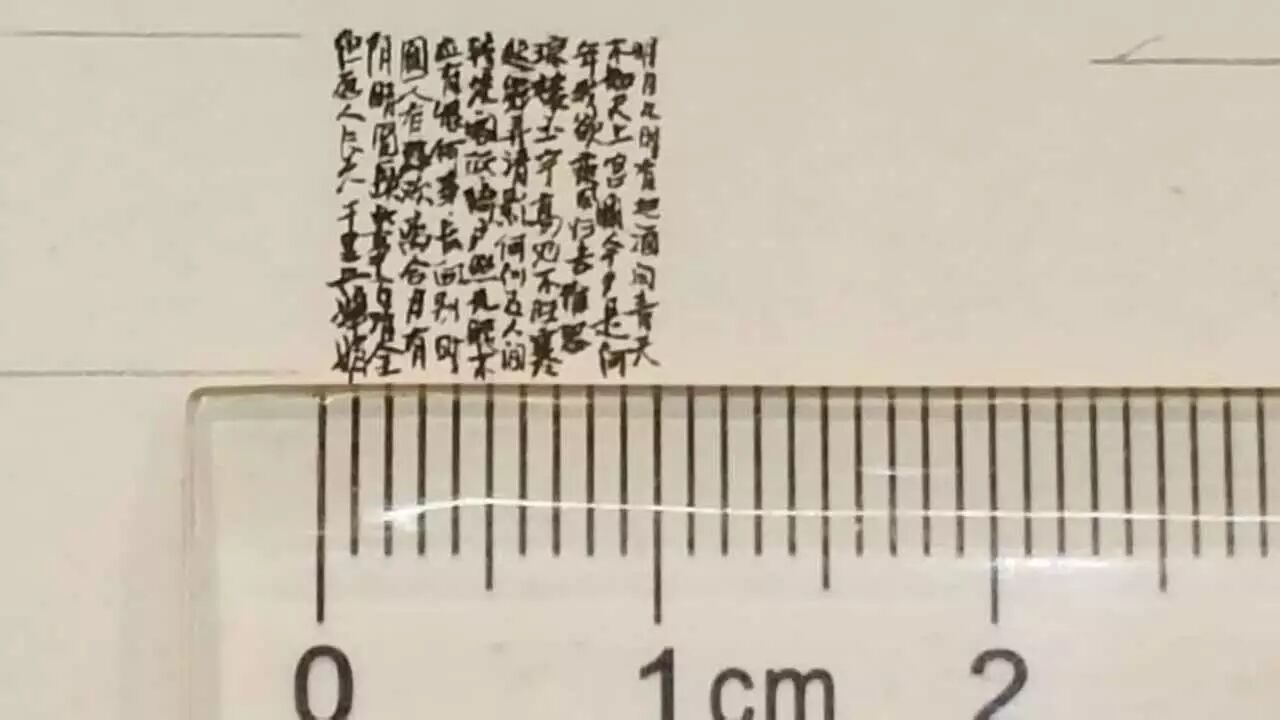 明月几时有把酒问青天
不知天上宫阙今夕是何
年我欲乘风归去惟恐
琼楼玉宇高处不胜寒
起舞弄清影何似在人间
转朱阁低绮户照无眠不
应有恨何事长向别时
圆人有悲欢离合月有
阴晴圆缺此事古难全
但愿人长久千里共婵娟
0 1cm 2